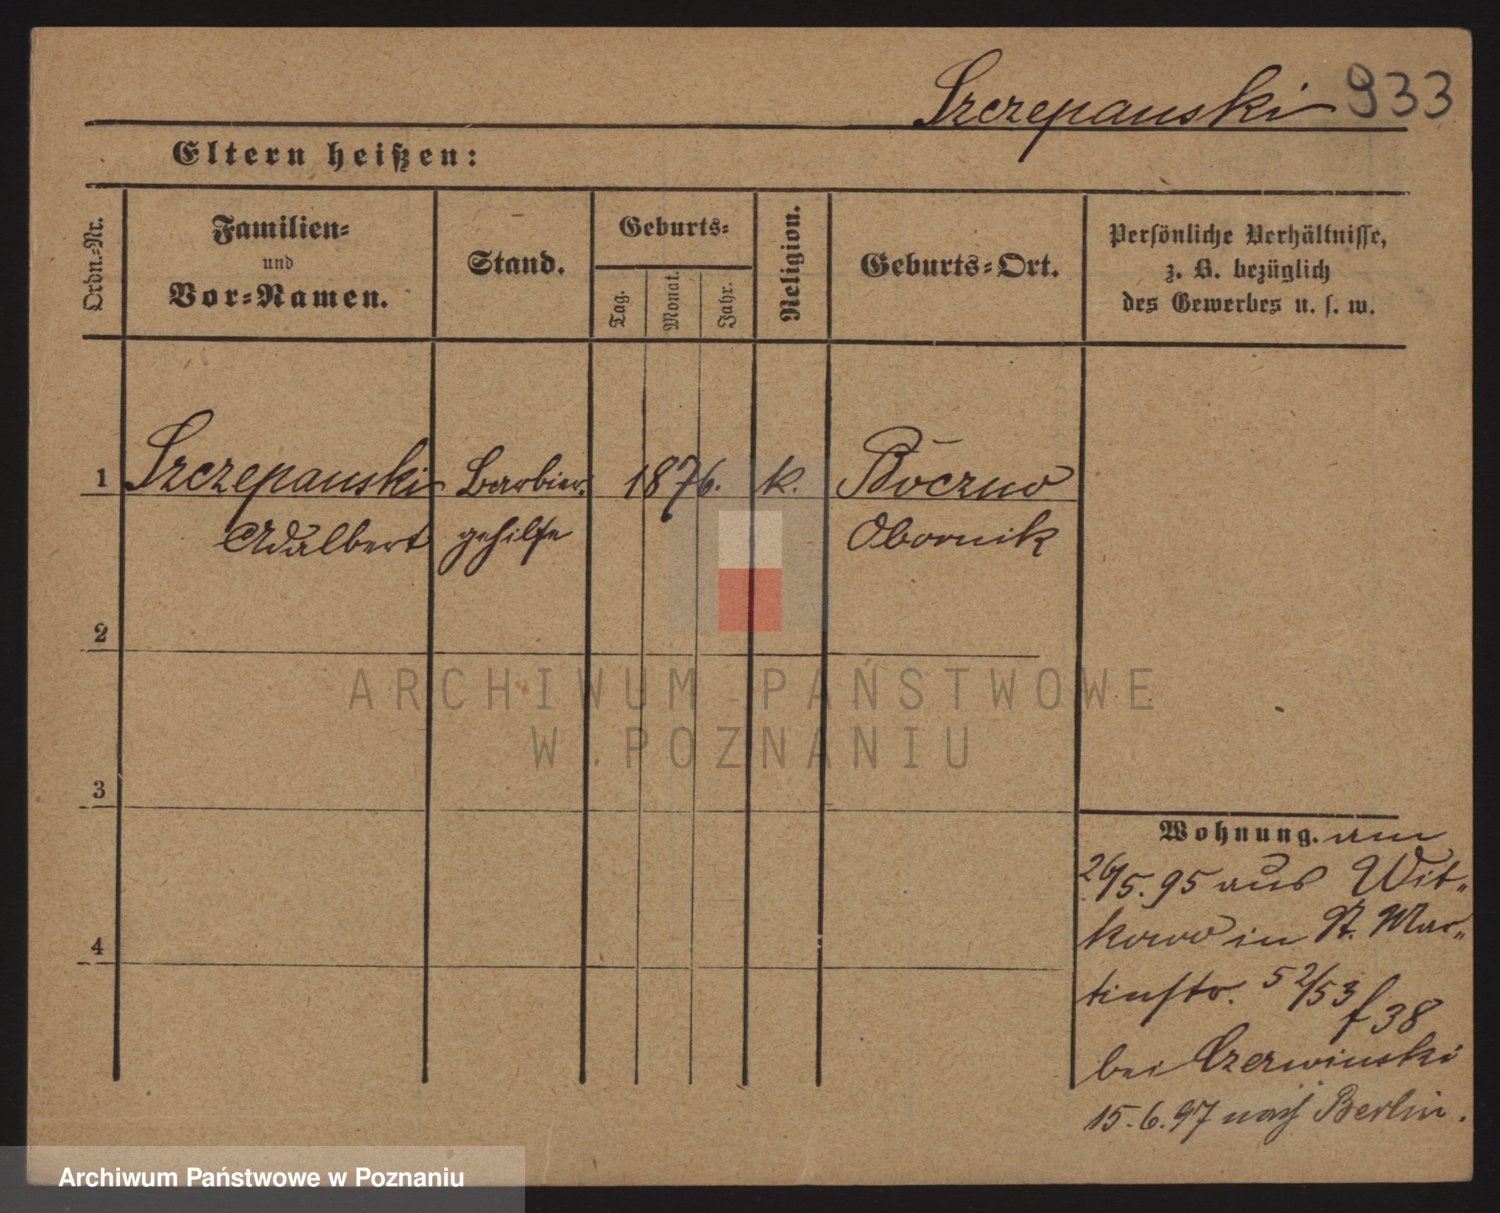 Szczepanski 933
Eltern heißen:
Ordn.-Nr.
Familien-
und
Vor-Namen.
Stand.
Geburts-
Tag.
Monat.
Jahr.
Religion.
Geburts-Ort.
Persönliche Verhältnisse,
z. B. bezüglich
des Gewerbes u. s. w.
1 Szczepanski Barbier- 1876. k.
Adalbert gehilfe Obornik
2
3
4
Wohnung. am
26/5.95 aus Wit-
kowo in St. Mar-
tinstr. 52/53 f 38
bei Czerwinski
15.6.97 nach Berlin.
ARCHIWUM PAŃSTWOWE
W POZNANIU
Archiwum Państwowe w Poznaniu